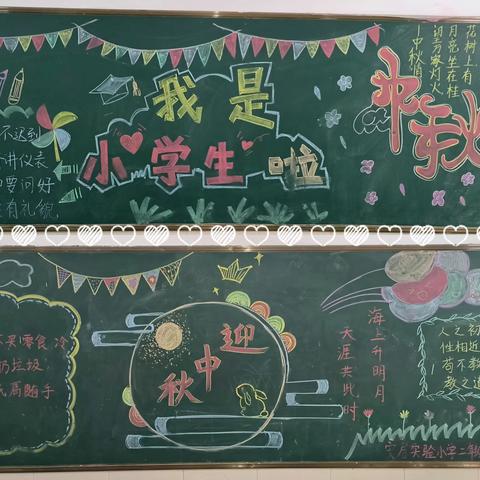 我是
小学生啦
不迟到
讲仪表
要问好
有礼貌
花树上有
月亮坐在桂
万家灯火
中秋
中秋
买零食
扔垃圾
随手
迎中秋
海上升明月
天涯共此时
人之初
性相近
苟不教
教之道
实验小学二年